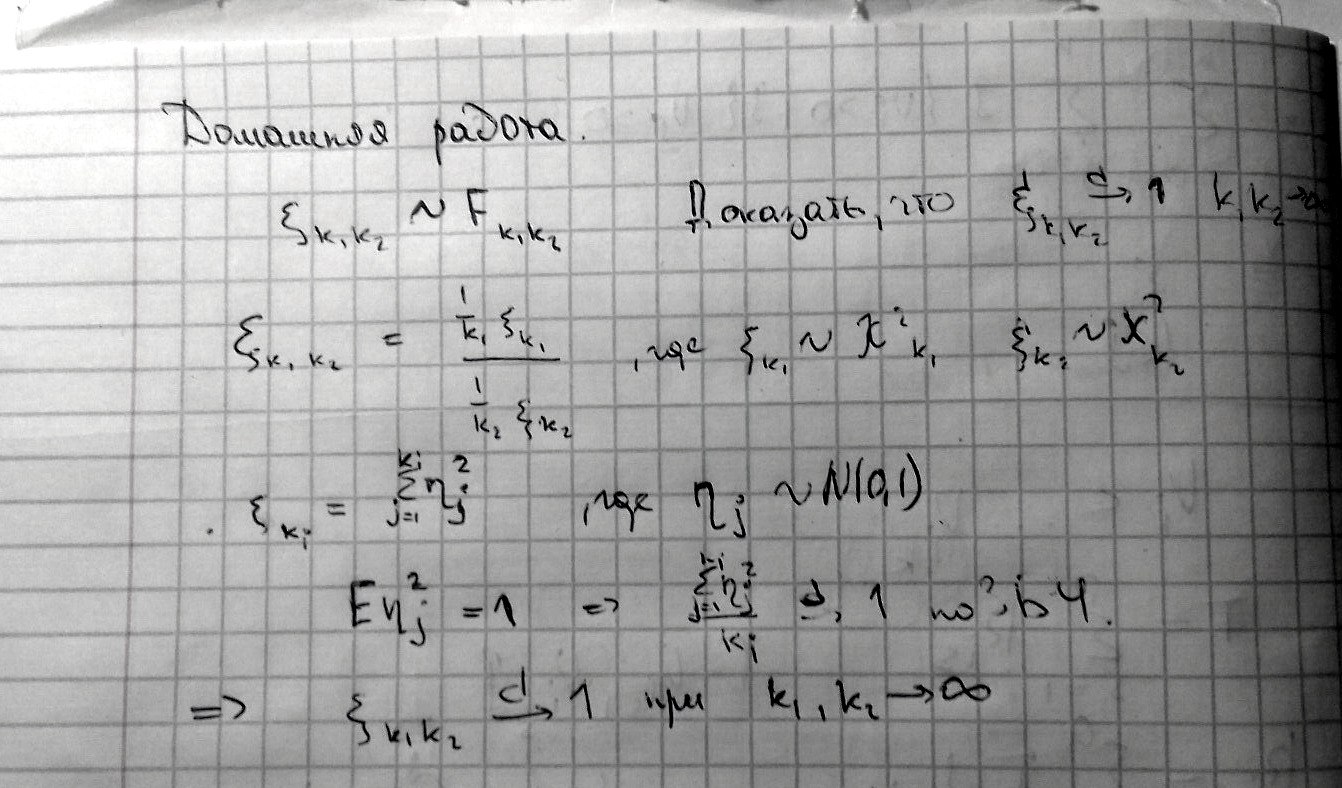 Домашняя работа.
ξ_{k₁k₂} ~ F_{k₁k₂} Доказать, что ξ_{k₁k₂} →^d 1 k₁k₂→∞
ξ_{k₁,k₂} = (1/k₁ ξ_{k₁}) / (1/k₂ ξ_{k₂}) , где ξ_{k₁} ~ χ²_{k₁} ξ_{k₂} ~ χ²_{k₂}
ξ_{k_i} = Σ_{j=1}^{k_i} η_j² , где η_j ~ N(0,1).
Eη_j² = 1 => (Σ_{j=1}^{k_i} η_j²) / k_i →^d 1 по ЗБЧ.
=> ξ_{k₁k₂} →^d 1 при k₁, k₂ → ∞